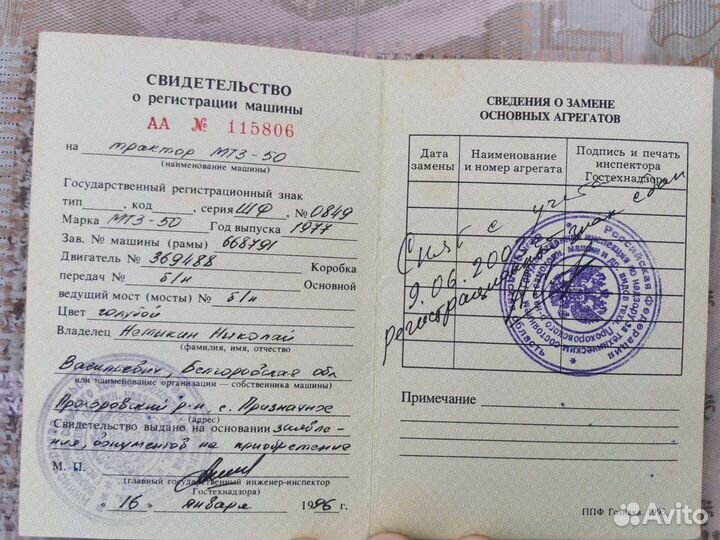 СВИДЕТЕЛЬСТВО
о регистрации машины
АА № 115806
на трактор МТЗ-50
(наименование машины)
Государственный регистрационный знак
тип , код , серия ШФ , № 0849
Марка МТЗ-50 Год выпуска 1977
Зав. № машины (рамы) 668791
Двигатель № 369488 Коробка
передач № б/н Основной
ведущий мост (мосты) № б/н
Цвет голубой
Владелец Николай
(фамилия, имя, отчество)
Васильевич, Белгородская обл
или наименование организации — собственника машины)
Прохоровский р-н, с. Призначное
(адрес)
Свидетельство выдано на основании заявле-
ния, документов на приобретение
М. П.
(главный государственный инженер-инспектор
Гостехнадзора)
" 16 " января 1996 г.
СВЕДЕНИЯ О ЗАМЕНЕ
ОСНОВНЫХ АГРЕГАТОВ
Дата замены
Наименование и номер агрегата
Подпись и печать инспектора Гостехнадзора
Снят с учета
9.06.200
Регистрационный знак сдан
Российская Федерация
Примечание
ППФ Гознака. 1995.
Avito